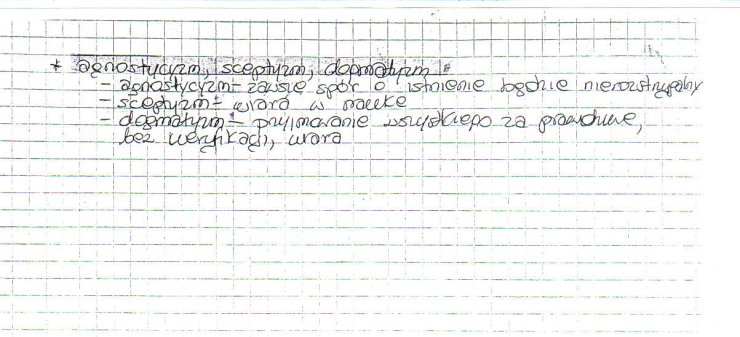 * agnostycyzm, sceptyzm, dogmatyzm:
- agnostycyzm - zawsze spór o istnienie będzie nierozstrzygalny
- sceptyzm - wiara w naukę
- dogmatyzm - przyjmowanie wszystkiego za prawdziwe,
bez weryfikacji, wiara